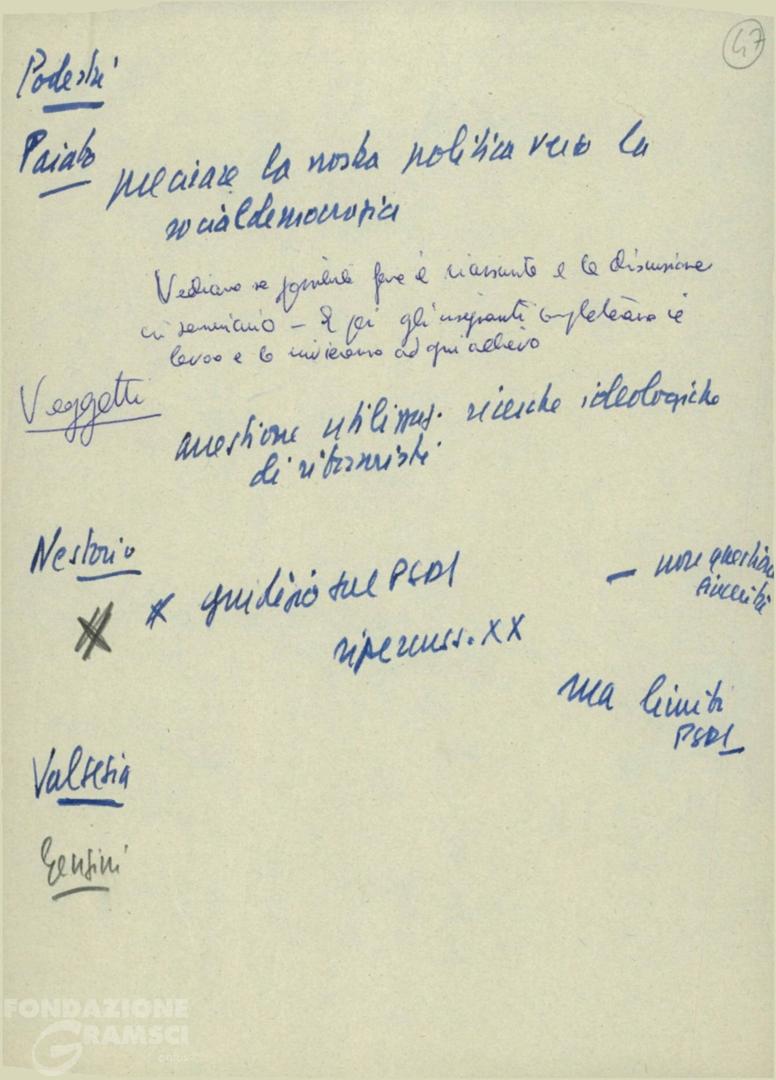 47
Podestà
Paiato
precisare la nostra politica verso la
socialdemocrazia
Vediamo se fare il riassunto e la discussione
in seminario – E poi gli insegnanti completano il
lavoro e lo inviano ad ogni allievo
Veggetti
questione utilizzaz. ricerche ideologiche
di
Nestorio
– non questione
sincerità
* giudizio sul PSDI
ripercuss. XX
ma limiti
PSDI
Valsesia
Gensini
FONDAZIONE
GRAMSCI
onlus